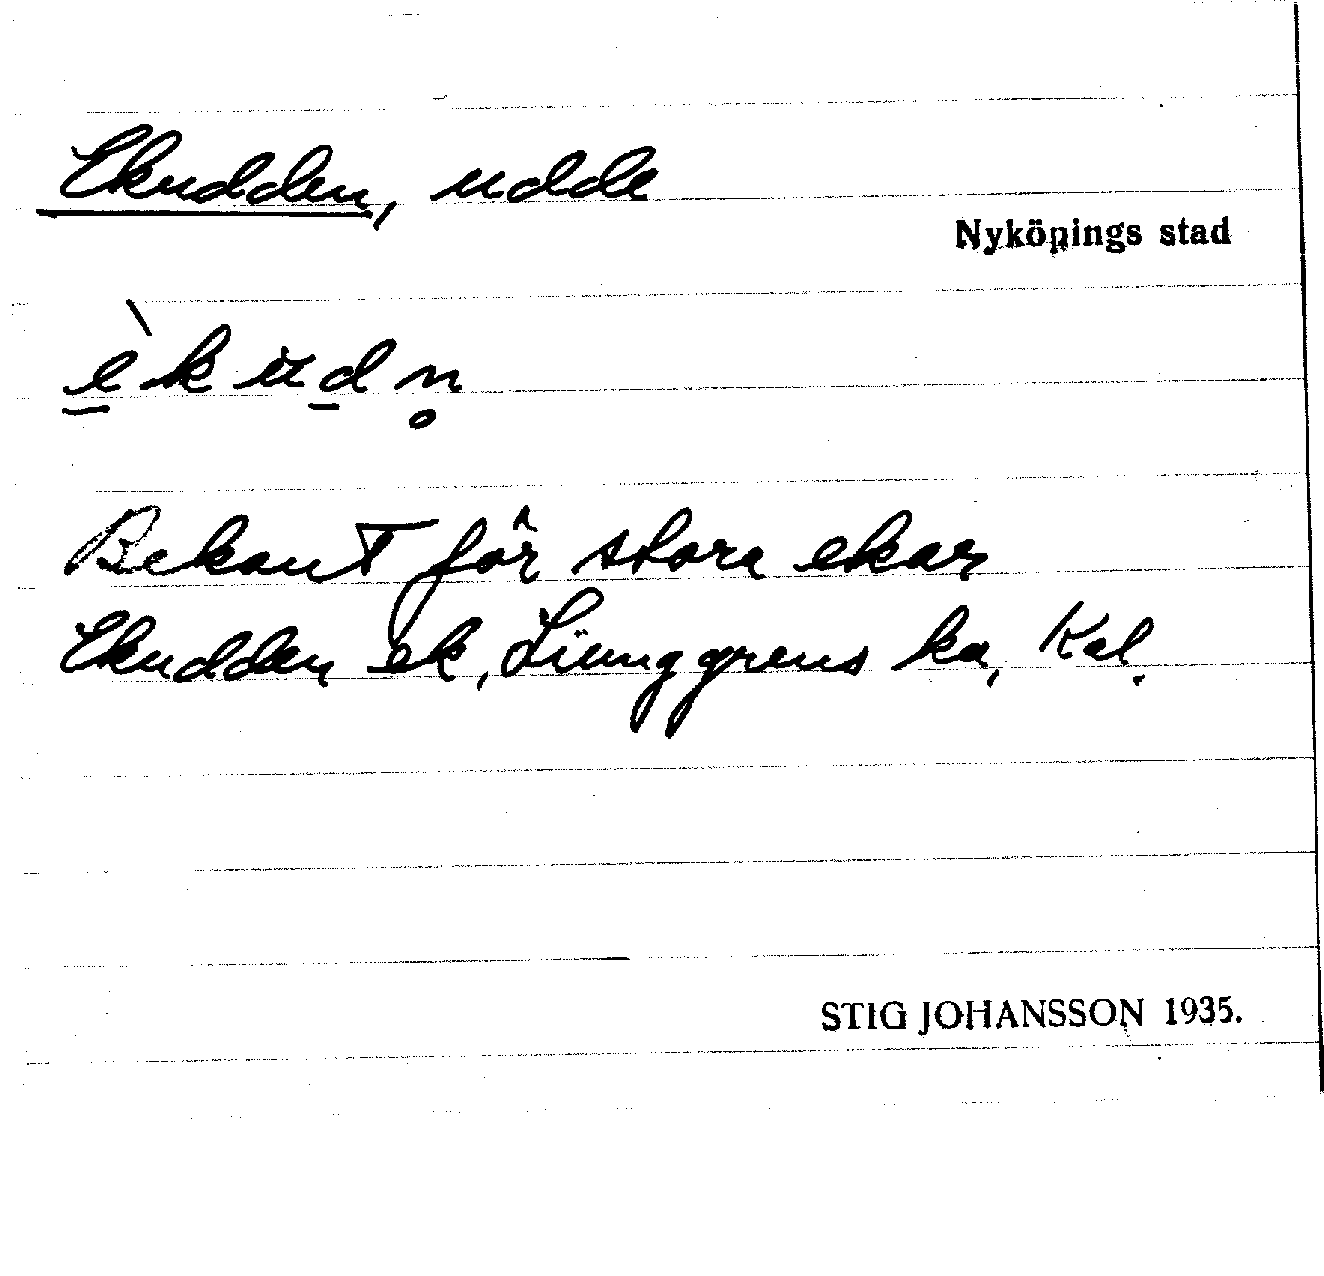 Ekudden, udde
Nyköpings stad
è̱kuḏn̥
Bekant för stora ekar
Ekudden ek, Liunggrens ka, Kal.
STIG JOHANSSON 1935.